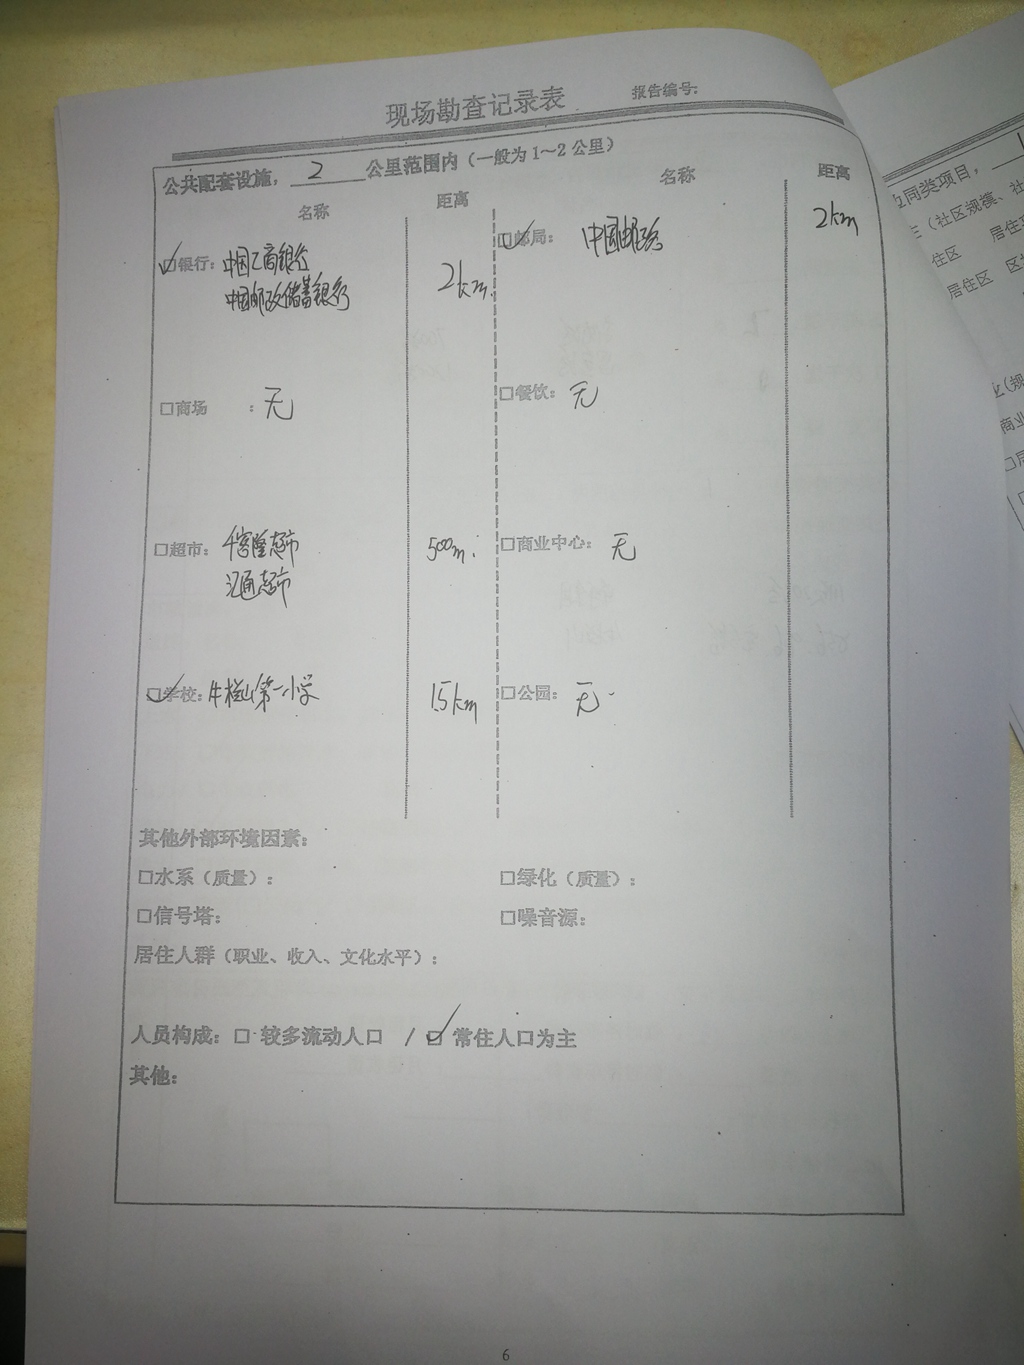 现场勘查记录表 报告编号:
公共配套设施，2公里范围内（一般为1～2公里）
名称 距离 名称 距离
☑银行：中国工商银行 2km. ☑邮局：中国邮政 2km
中国邮政储蓄银行
□商场 ：无 □餐饮：无
□超市：隆超市 500m. □商业中心：无
汇通超市
☑学校：牛栏山第一小学 1.5km □公园：无
其他外部环境因素：
□水系（质量）： □绿化（质量）：
□信号塔： □噪音源：
居住人群（职业、收入、文化水平）：
人员构成：□ 较多流动人口 / ☑ 常住人口为主
其他：
6
边同类项目，
（社区规模、社
住区 居住
居住区 区
业（规
商业